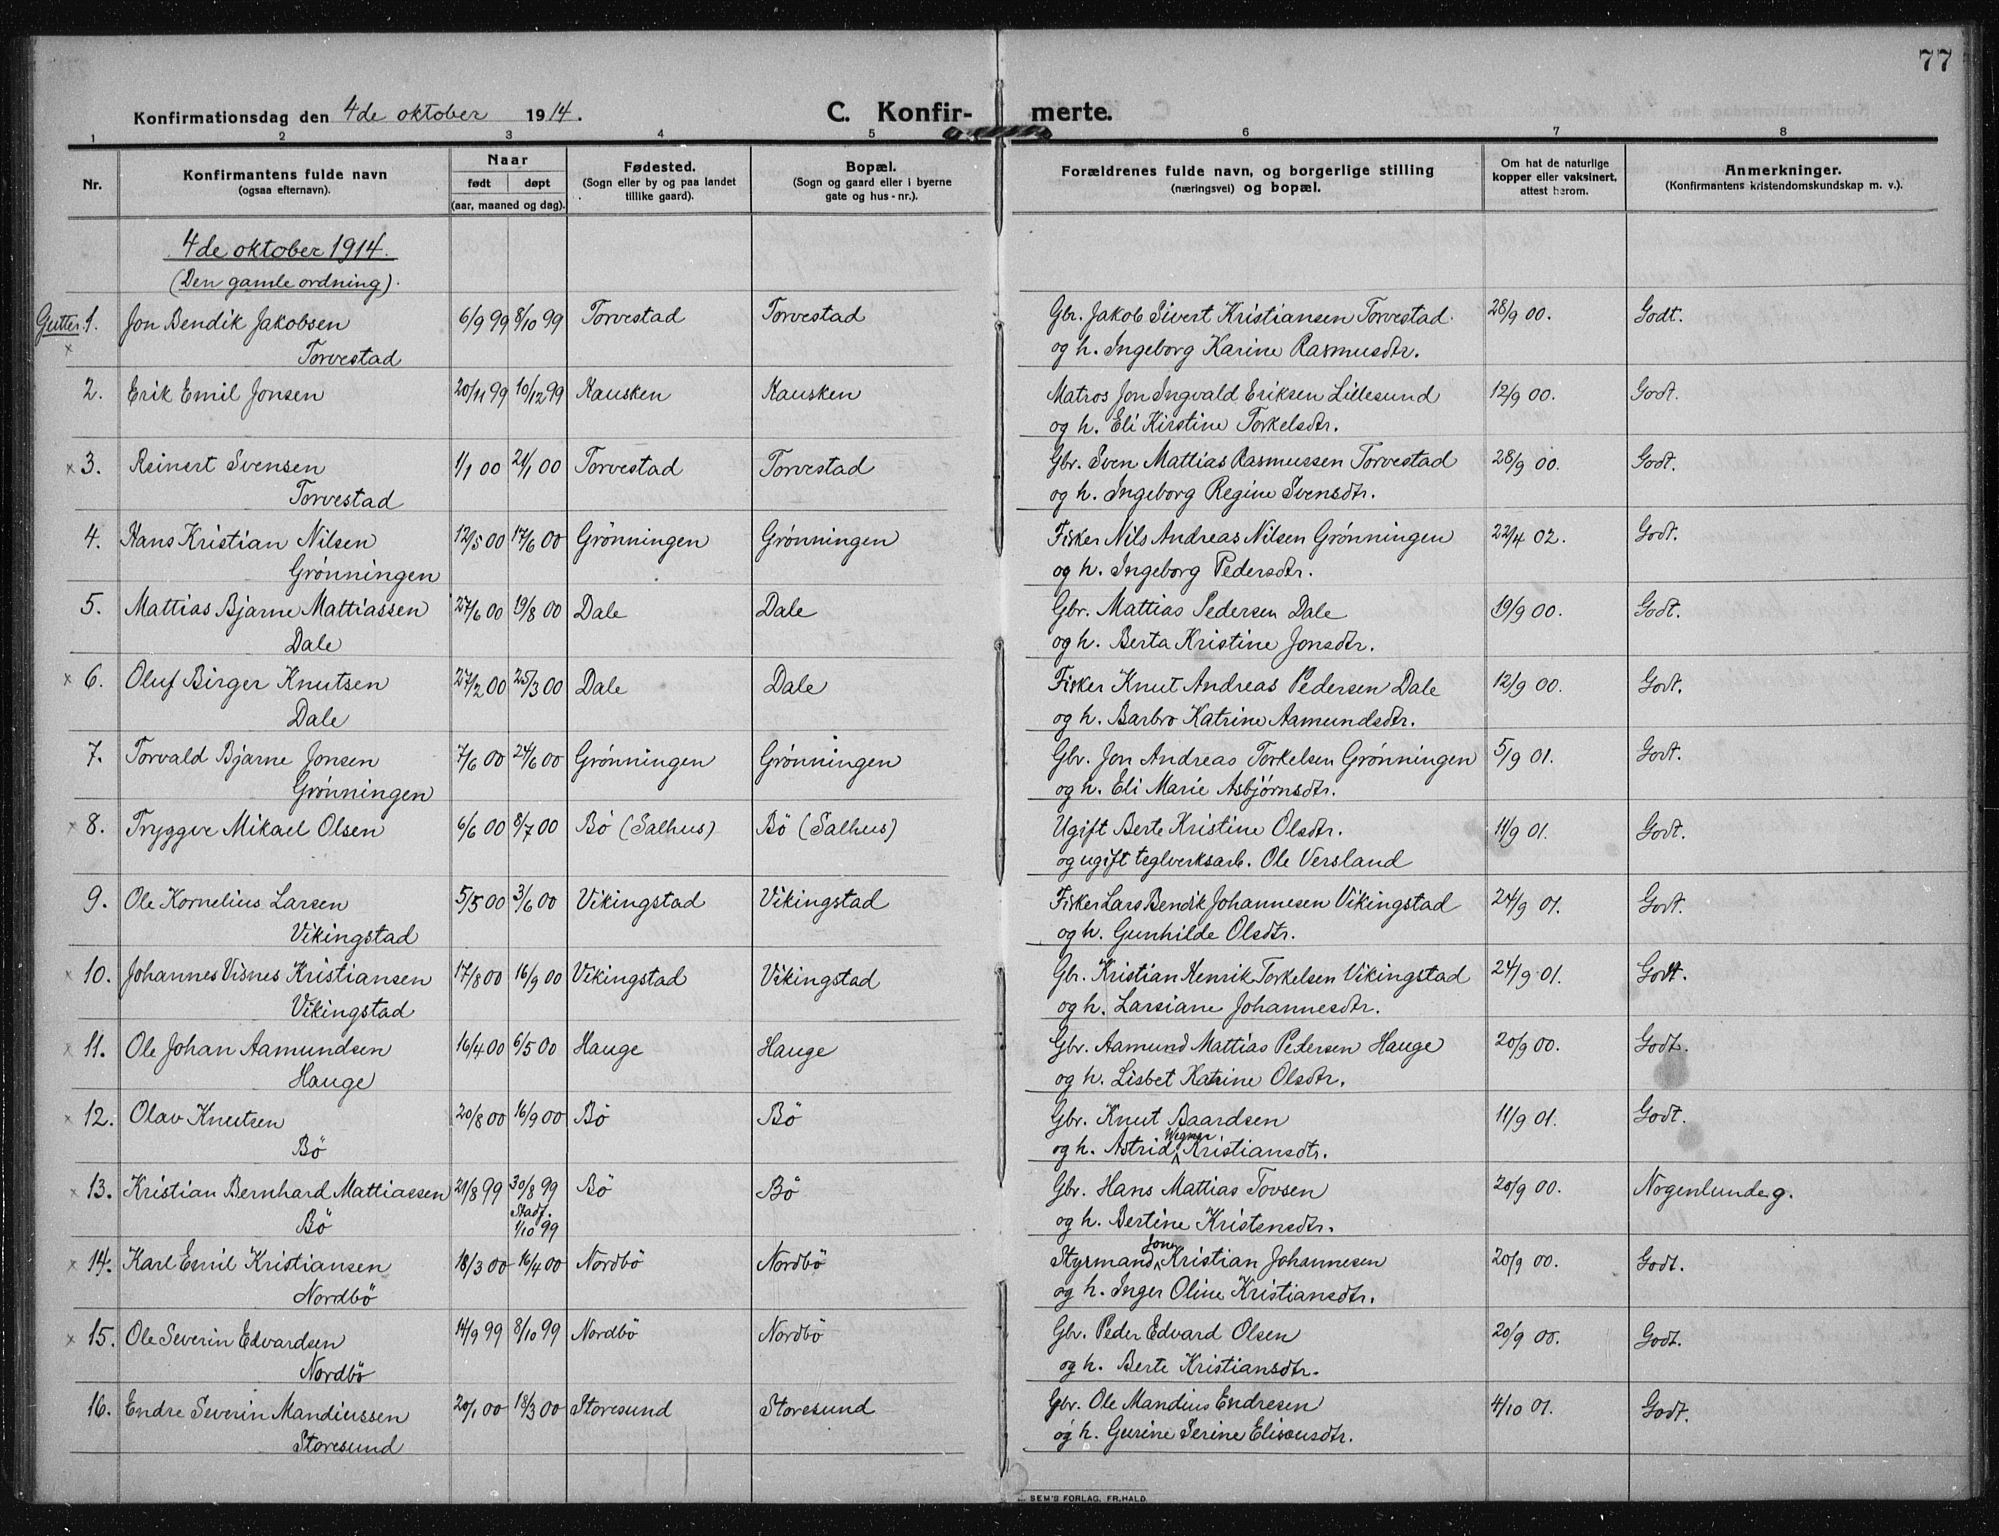 77
Konfirmationsdag den 4de oktober 1914. C. Konfirmerte.
1 2 3 4 5 6 7 8
Nr. Konfirmantens fulde navn (ogsaa efternavn). Naar født døpt (aar, maaned og dag). Fødested. (Sogn eller by og paa landet tillike gaard). Bopæl. (Sogn og gaard eller i byerne gate og hus-nr.). Forældrenes fulde navn, og borgerlige stilling (næringsvei) og bopæl. Om hat de naturlige kopper eller vaksinert, attest herom. Anmerkninger. (Konfirmantens kristendomskundskap m. v.).
4de oktober 1914.
(Den gamle ordning).
Gutter 1. Jon Bendik Jakobsen 6/9 99 8/10 99 Torvestad Torvestad Gbr. Jakob Sivert Kristiansen Torvestad. 28/9 00. Godt.
x Torvestad og h. Ingeborg Karine Rasmusdtr.
2. Erik Emil Jonsen 20/11 99 10/12 99 Kausken Kausken Matros Jon Ingvald Eriksen Lillesund 12/9 00. Godt.
og h. Eli Kirstine Torkelsdtr.
x 3. Reinert Svensen 1/1 00 21/1 00 Torvestad Torvestad Gbr. Sven Mattias Rasmussen Torvestad 28/9 00. Godt.
Torvestad og h. Ingeborg Regine Svensdtr.
4. Hans Kristian Nilsen 12/5 00 17/6 00 Grønningen Grønningen Fisker Nils Andreas Nilsen Grønningen 22/4 02. Godt.
Grønningen og h. Ingeborg Pedersdtr.
5. Mattias Bjarne Mattiassen 27/6 00 19/8 00 Dale Dale Gbr. Mattias Pedersen Dale 19/9 00. Godt.
Dale og h. Berta Kristine Jonsdtr.
x 6. Oluf Birger Knutsen 27/2 00 25/3 00 Dale Dale Fisker Knut Andreas Pedersen Dale 12/9 00. Godt.
Dale og h. Barbro Katrine Aamundsdtr.
7. Torvald Bjarne Jonsen 7/6 00 24/6 00 Grønningen Grønningen Gbr. Jon Andreas Torkelsen Grønningen 5/9 01. Godt.
Grønningen og h. Eli Marie Asbjørnsdtr.
x 8. Tryggve Mikael Olsen 6/6 00 8/7 00 Bö (Salhus) Bö (Salhus) Ugift Berte Kristine Olsdtr. 11/9 01. Godt.
og ugift teglverksarb. Ole Versland
9. Ole Kornelius Larsen 5/5 00 3/6 00 Vikingstad Vikingstad Fisker Lars Bendik Johannesen Vikingstad 24/9 01. Godt.
Vikingstad og h. Gunhilde Olsdtr.
x 10. Johannes Visnes Kristiansen 17/8 00 16/9 00 Vikingstad Vikingstad Gbr. Kristian Henrik Torkelsen Vikingstad 24/9 01. Godt.
Vikingstad og h. Larsiane Johannesdtr.
x 11. Ole Johan Aamundsen 16/4 00 6/5 00 Hauge Hauge Gbr. Aamund Mattias Pedersen Hauge 20/9 00. Godt.
Hauge og h. Lisbet Katrine Olsdtr.
x 12. Olav Knutsen 20/8 00 16/9 00 Bö Bö Gbr. Knut Baardsen 11/9 01. Godt.
Bö og h. Astrid Wegner Kristiansdtr.
x 13. Kristian Bernhard Mattiassen 21/8 99 30/8 99 Bö Bö Gbr. Hans Mattias Tovsen 20/9 00. Nogenlunde g.
Bö Stadf. 1/10 99 og h. Bertine Kristensdtr.
x 14. Karl Emil Kristiansen 18/3 00 16/4 00 Nordbö Nordbö Styrmand Jone Kristian Johannesen 20/9 00. Godt.
Nordbö og h. Inger Oline Kristiansdtr.
x 15. Ole Severin Edvardsen 14/9 99 8/10 99 Nordbö Nordbö Gbr. Peder Edvard Olsen 20/9 00. Godt.
Nordbö og h. Berte Kristiansdtr.
16. Endre Severin Mandiussen 20/1 00 18/3 00 Storesund Storesund Gbr. Ole Mandius Endresen 4/10 01. Godt.
Storesund og h. Gurine Serine Elisæusdtr.
SEM'S FORLAG, FR.HALD.